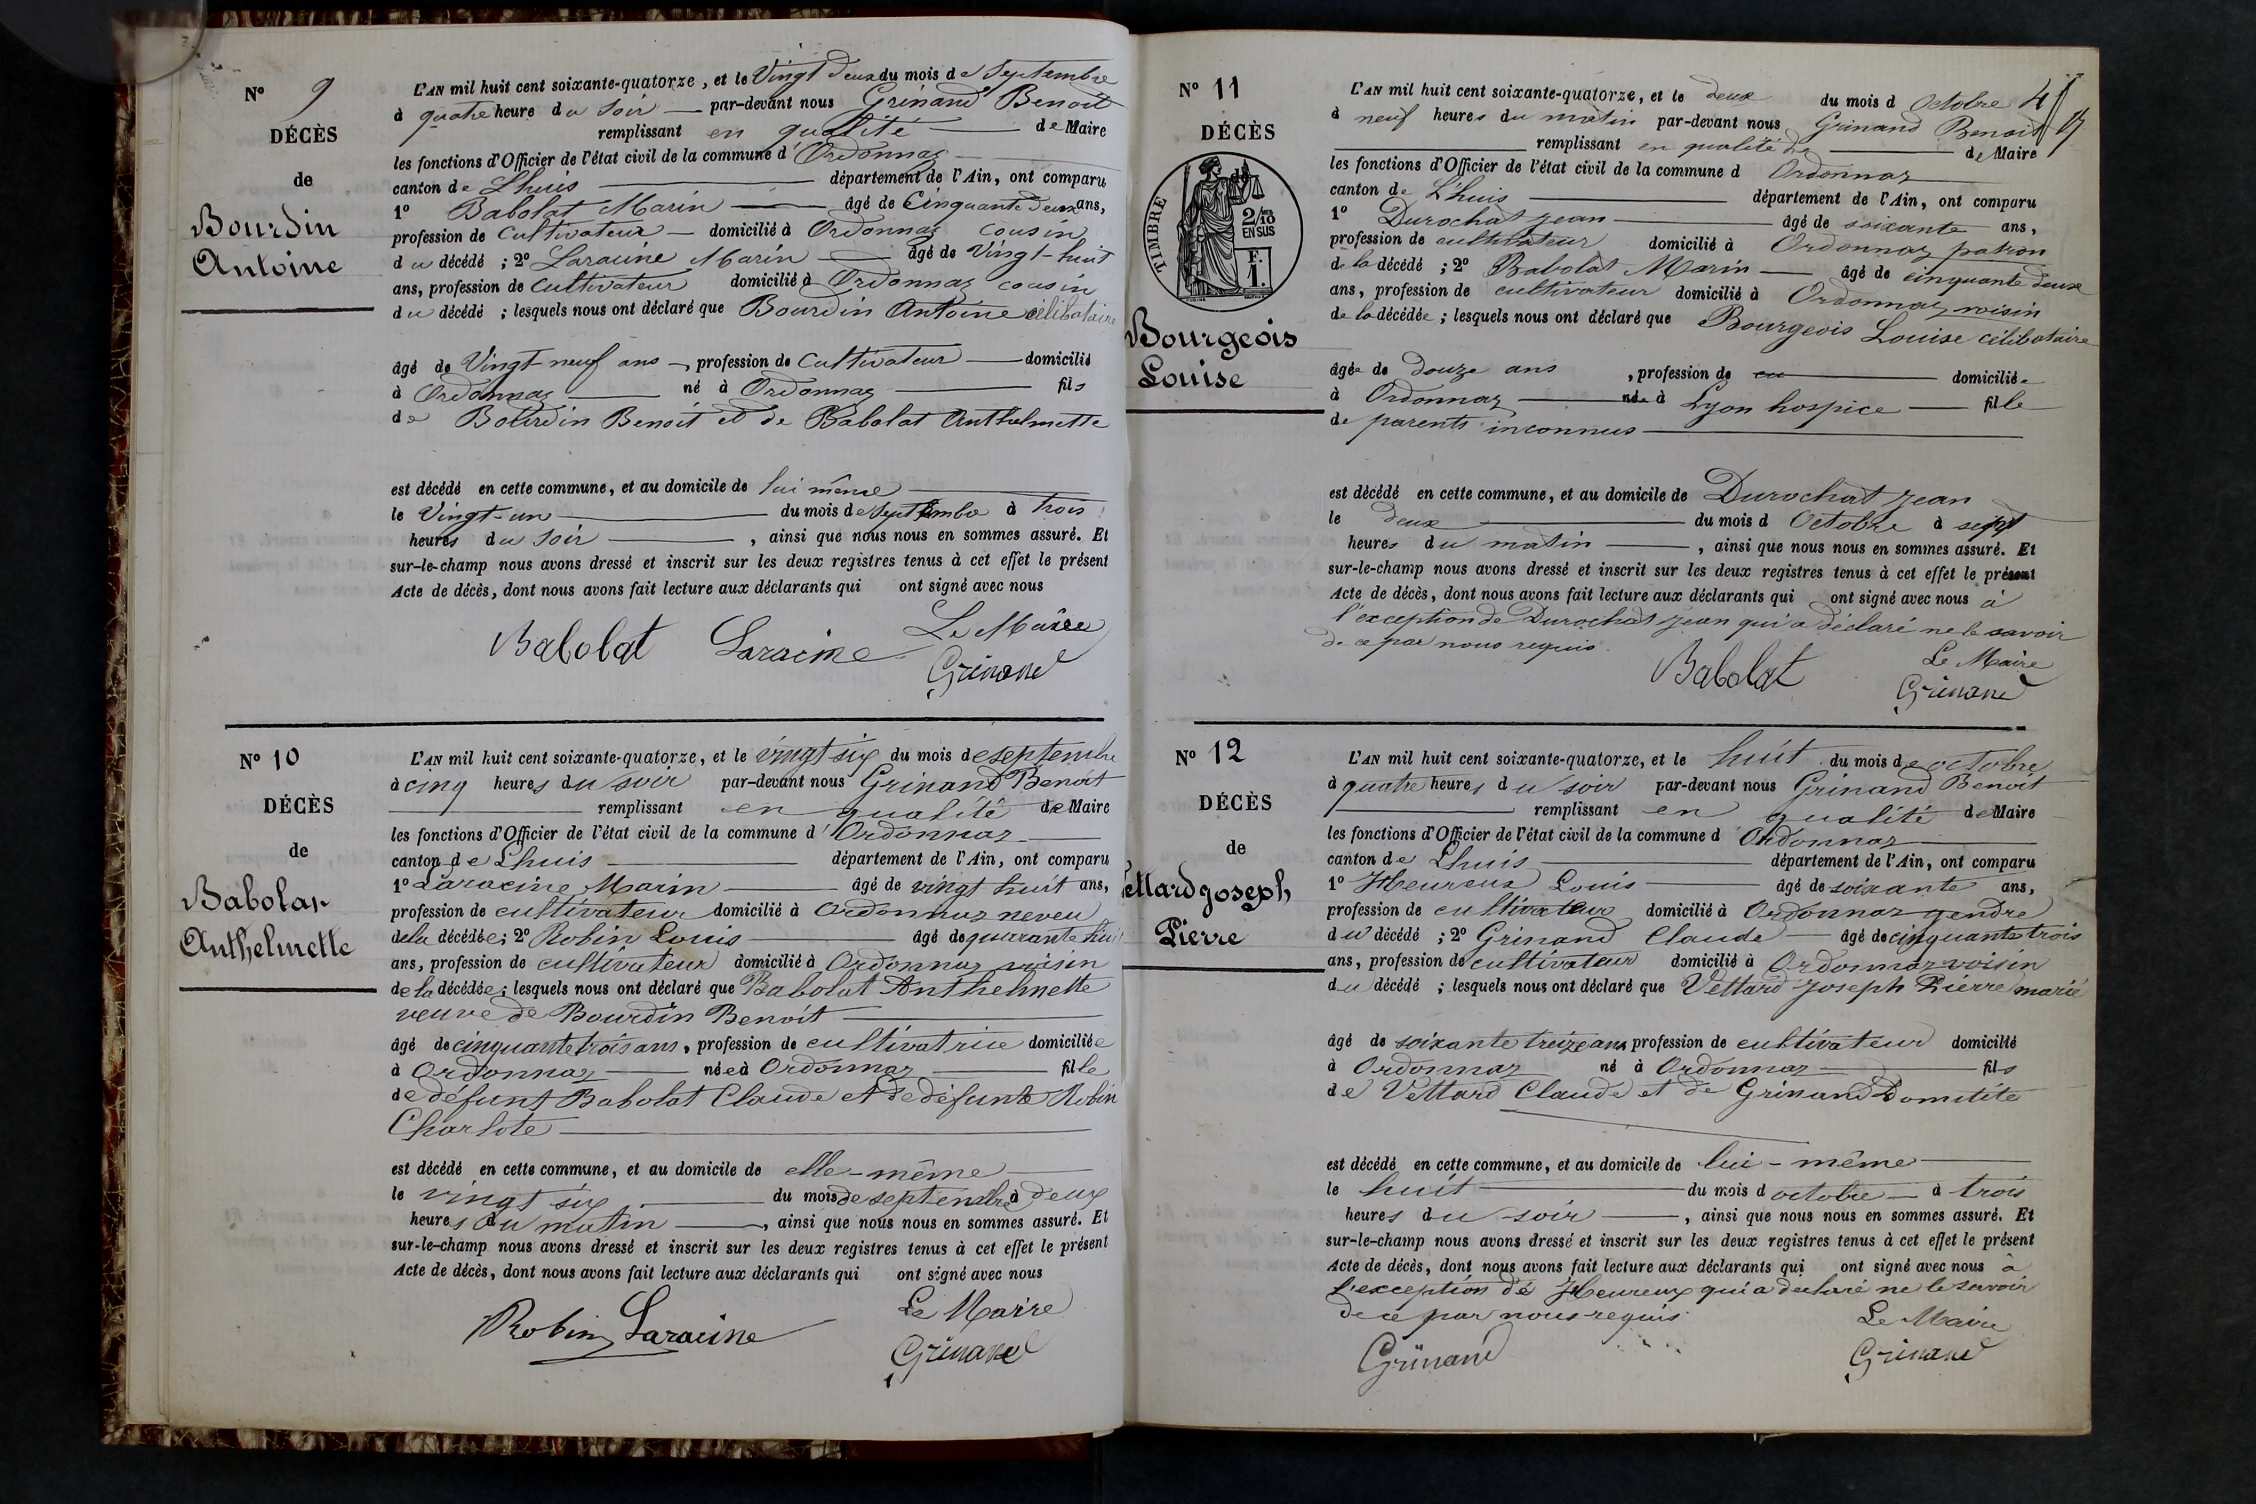 N° 9
DÉCÈS
de
Bourdin
Antoine
L'AN mil huit cent soixante-quatorze, et le Vingt deux du mois de Septembre
à quatre heure du Soir par-devant nous Grinand Benoit
remplissant en qualité de Maire
les fonctions d'Officier de l'état civil de la commune d'Ordonnaz
canton de Lhuis département de l'Ain, ont comparu
1° Babolat Marin âgé de Cinquante deux ans,
profession de Cultivateur domicilié à Ordonnaz cousin
du décédé ; 2° Laracine Marin âgé de Vingt-huit
ans, profession de Cultivateur domicilié à Ordonnaz cousin
du décédé ; lesquels nous ont déclaré que Bourdin Antoine célibataire
âgé de Vingt-neuf ans, profession de Cultivateur domicilié
à Ordonnaz né à Ordonnaz fils
de Bourdin Benoit et de Babolat Anthelmette
est décédé en cette commune, et au domicile de lui même
le Vingt-un du mois de Septembre à trois
heures du Soir, ainsi que nous nous en sommes assuré. Et
sur-le-champ nous avons dressé et inscrit sur les deux registres tenus à cet effet le présent
Acte de décès, dont nous avons fait lecture aux déclarants qui ont signé avec nous
Babolat Laracine Le Maire
Grinand
N° 10
DÉCÈS
de
Babolat
Anthelmette
L'AN mil huit cent soixante-quatorze, et le vingt six du mois de septembre
à cinq heures du soir par-devant nous Grinand Benoit
remplissant en qualité de Maire
les fonctions d'Officier de l'état civil de la commune d'Ordonnaz
canton de Lhuis département de l'Ain, ont comparu
1° Laracine Marin âgé de vingt huit ans,
profession de cultivateur domicilié à Ordonnaz neveu
de la décédée ; 2° Robin Louis âgé de quarante huit
ans, profession de cultivateur domicilié à Ordonnaz voisin
de la décédée ; lesquels nous ont déclaré que Babolat Anthelmette
veuve de Bourdin Benoit
âgé de cinquante trois ans, profession de cultivatrice domiciliée
à Ordonnaz née à Ordonnaz fille
de défunt Babolat Claude et de défunte Robin
Charlote
est décédé en cette commune, et au domicile de elle-même
le vingt six du mois de septembre à deux
heures du matin, ainsi que nous nous en sommes assuré. Et
sur-le-champ nous avons dressé et inscrit sur les deux registres tenus à cet effet le présent
Acte de décès, dont nous avons fait lecture aux déclarants qui ont signé avec nous
Robin Laracine Le Maire
Grinand
N° 11
DÉCÈS
TIMBRE
2/10
EN SUS
F.
1.
Bourgeois
Louise
L'AN mil huit cent soixante-quatorze, et le deux du mois d Octobre
à neuf heures du matin par-devant nous Grinand Benoit
remplissant en qualité de de Maire
les fonctions d'Officier de l'état civil de la commune d Ordonnaz
canton de L'huis département de l'Ain, ont comparu
1° Durochat Jean âgé de soixante ans,
profession de cultivateur domicilié à Ordonnaz patron
de la décédé ; 2° Babolat Marin âgé de cinquante deux
ans, profession de cultivateur domicilié à Ordonnaz voisin
de la décédée ; lesquels nous ont déclaré que Bourgeois Louise célibataire
âgée de douze ans, profession de domiciliée
à Ordonnaz née à Lyon hospice fille
de parents inconnus
est décédé en cette commune, et au domicile de Durochat Jean
le deux du mois d Octobre à sept
heures du matin, ainsi que nous nous en sommes assuré. Et
sur-le-champ nous avons dressé et inscrit sur les deux registres tenus à cet effet le présent
Acte de décès, dont nous avons fait lecture aux déclarants qui ont signé avec nous à
l'exception de Durochat Jean qui a déclaré ne le savoir
de ce par nous requis.
Babolat Le Maire
Grinand
N° 12
DÉCÈS
de
ettard Joseph
Pierre
L'AN mil huit cent soixante-quatorze, et le huit du mois de octobre
à quatre heures du soir par-devant nous Grinand Benoit
remplissant en qualité de Maire
les fonctions d'Officier de l'état civil de la commune d Ordonnaz
canton de Lhuis département de l'Ain, ont comparu
1° Heureux Louis âgé de soixante ans,
profession de cultivateur domicilié à Ordonnaz gendre
du décédé ; 2° Grinand Claude âgé de cinquante trois
ans, profession de cultivateur domicilié à Ordonnaz voisin
du décédé ; lesquels nous ont déclaré que Vettard Joseph Pierre marié
âgé de soixante treize ans profession de cultivateur domicilié
à Ordonnaz né à Ordonnaz fils
de Vettard Claude et de Grinand Domitite
est décédé en cette commune, et au domicile de lui-même
le huit du mois d octobre à trois
heures du soir, ainsi que nous nous en sommes assuré. Et
sur-le-champ nous avons dressé et inscrit sur les deux registres tenus à cet effet le présent
Acte de décès, dont nous avons fait lecture aux déclarants qui ont signé avec nous à
l'exception de Heureux qui a declaré ne le savoir
de ce par nous requis
Le Maire
Grinand Grinand